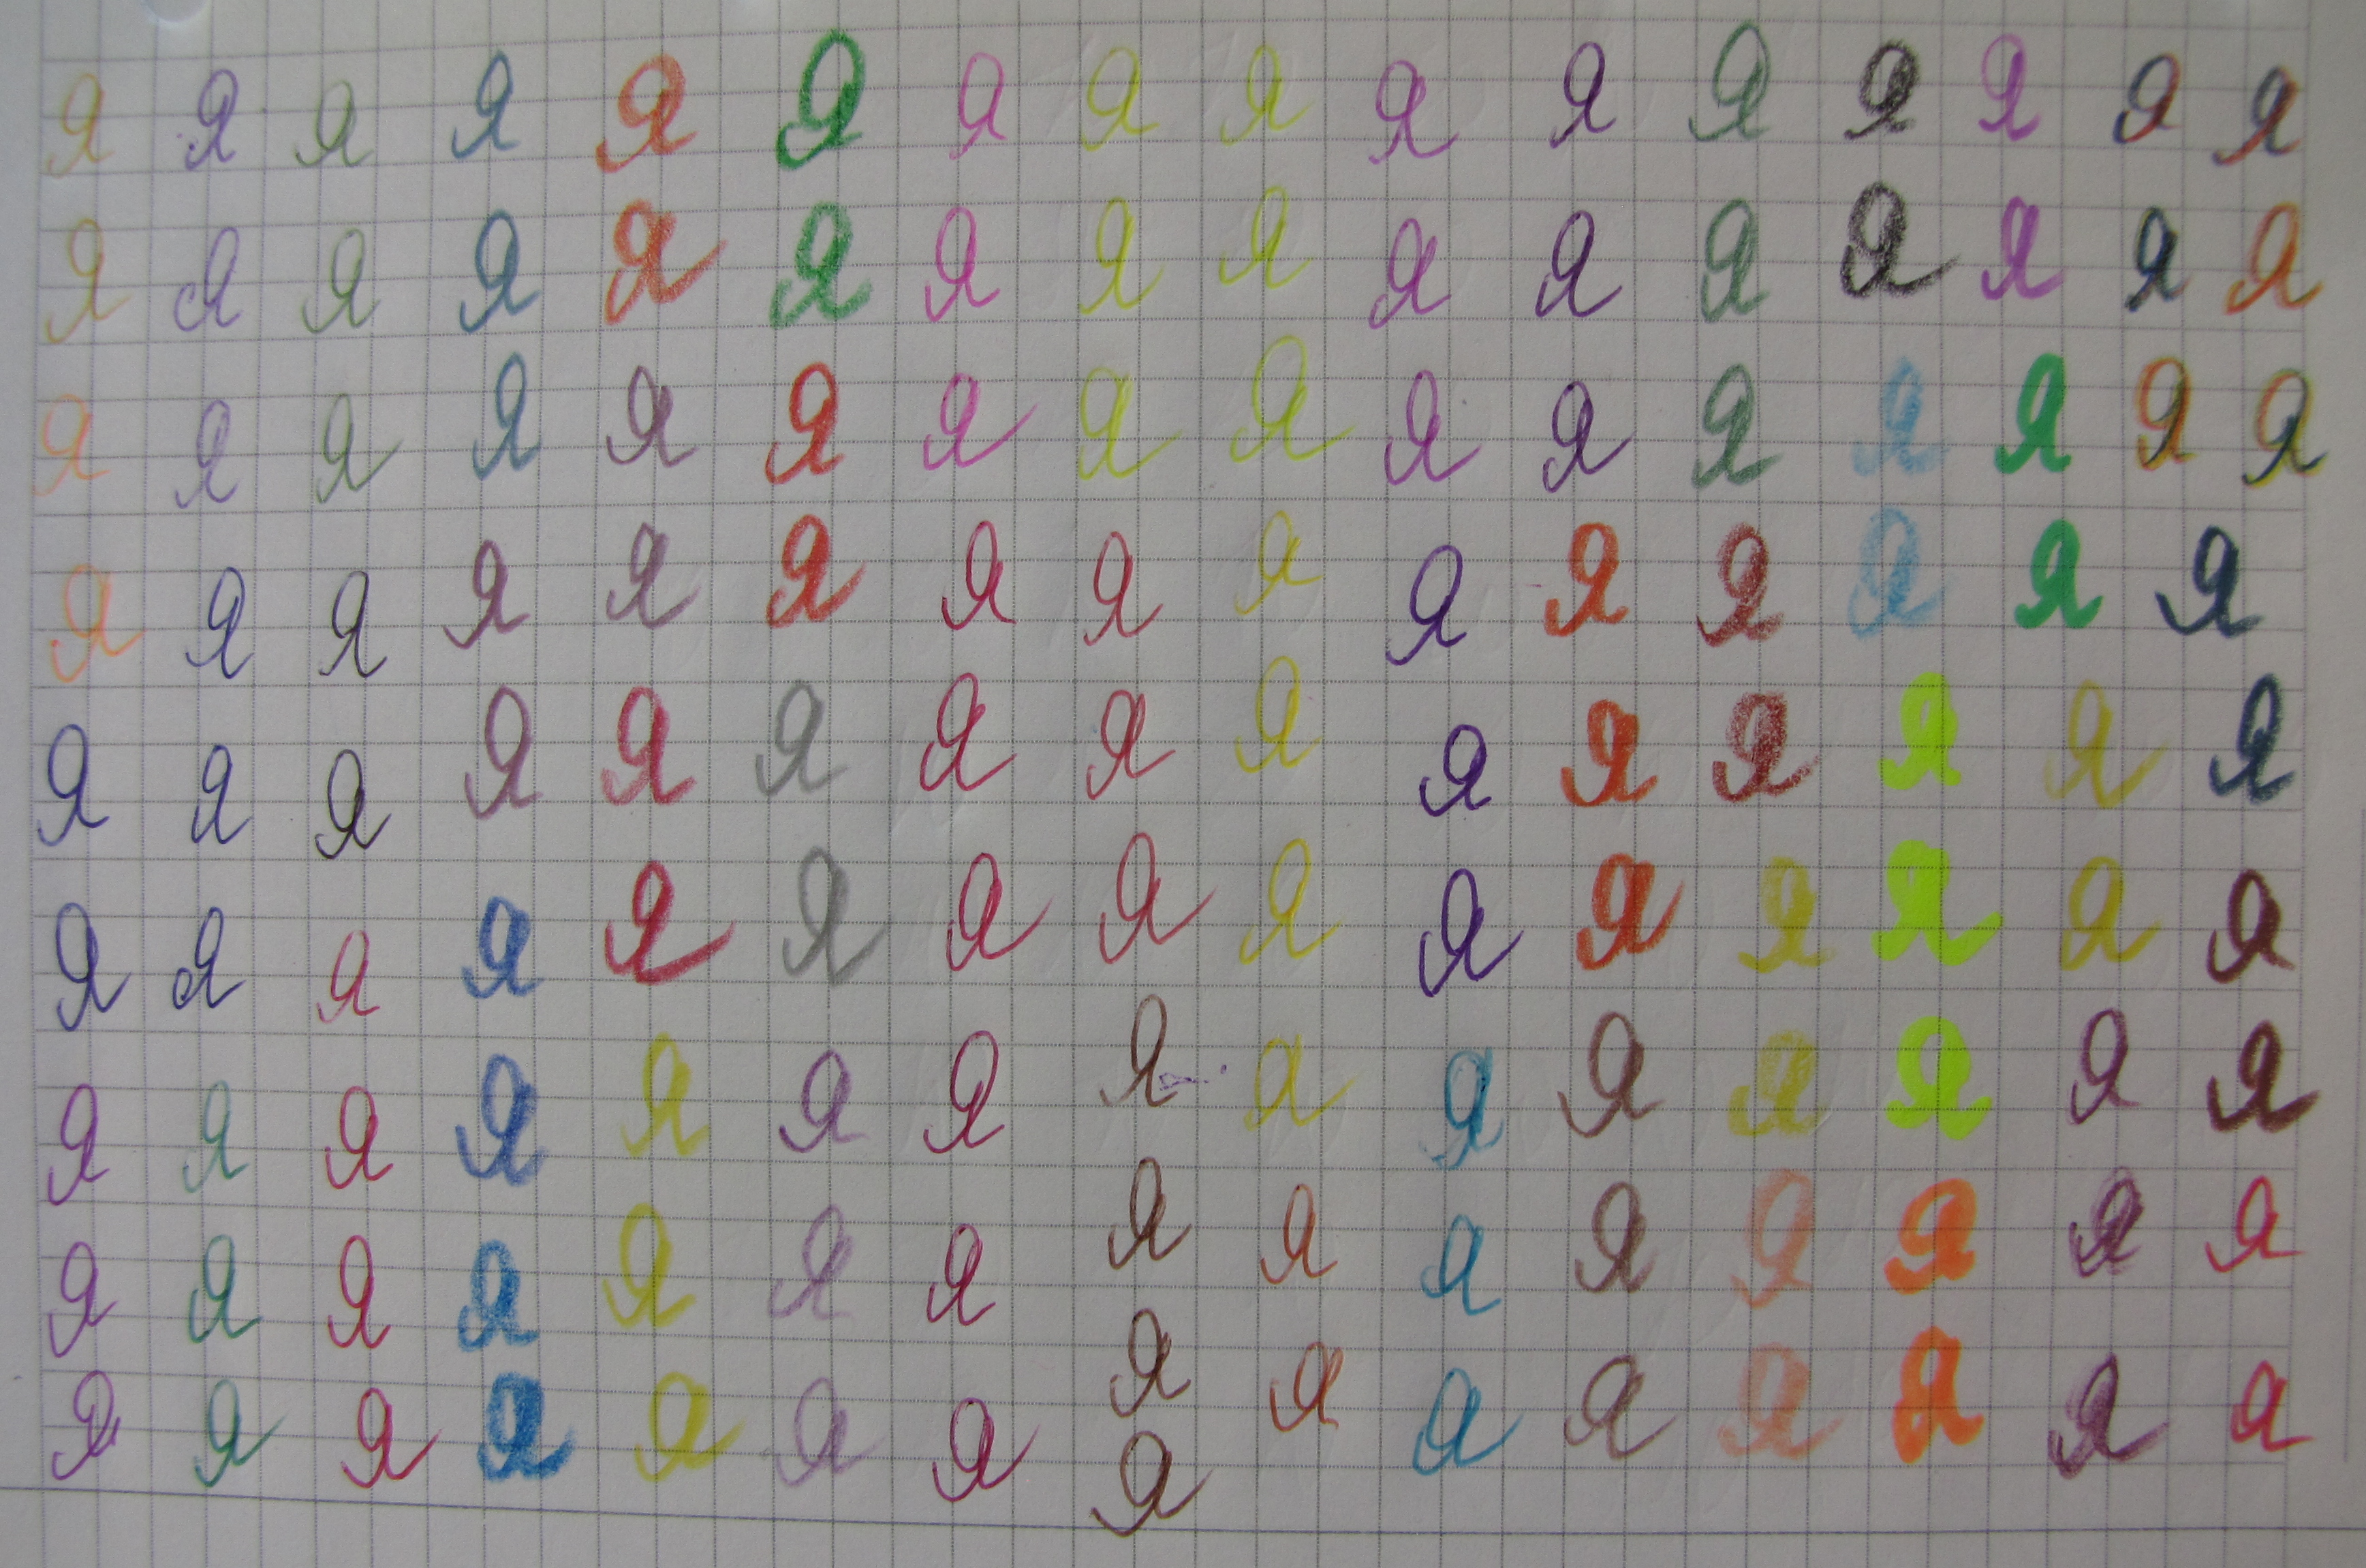 Я Я Я Я Я Я Я Я Я Я Я Я Я Я Я Я
Я Я Я Я Я Я Я Я Я Я Я Я Я Я Я Я
Я Я Я Я Я Я Я Я Я Я Я Я Я Я Я Я
Я Я Я Я Я Я Я Я Я Я Я Я Я Я Я
Я Я Я Я Я Я Я Я Я Я Я Я Я Я Я
Я Я Я Я Я Я Я Я Я Я Я Я Я Я Я
Я Я Я Я Я Я Я Я Я Я Я Я Я Я Я
Я Я Я Я Я Я Я Я Я Я Я Я Я Я Я
Я Я Я Я Я Я Я Я Я Я Я Я Я Я Я
Я